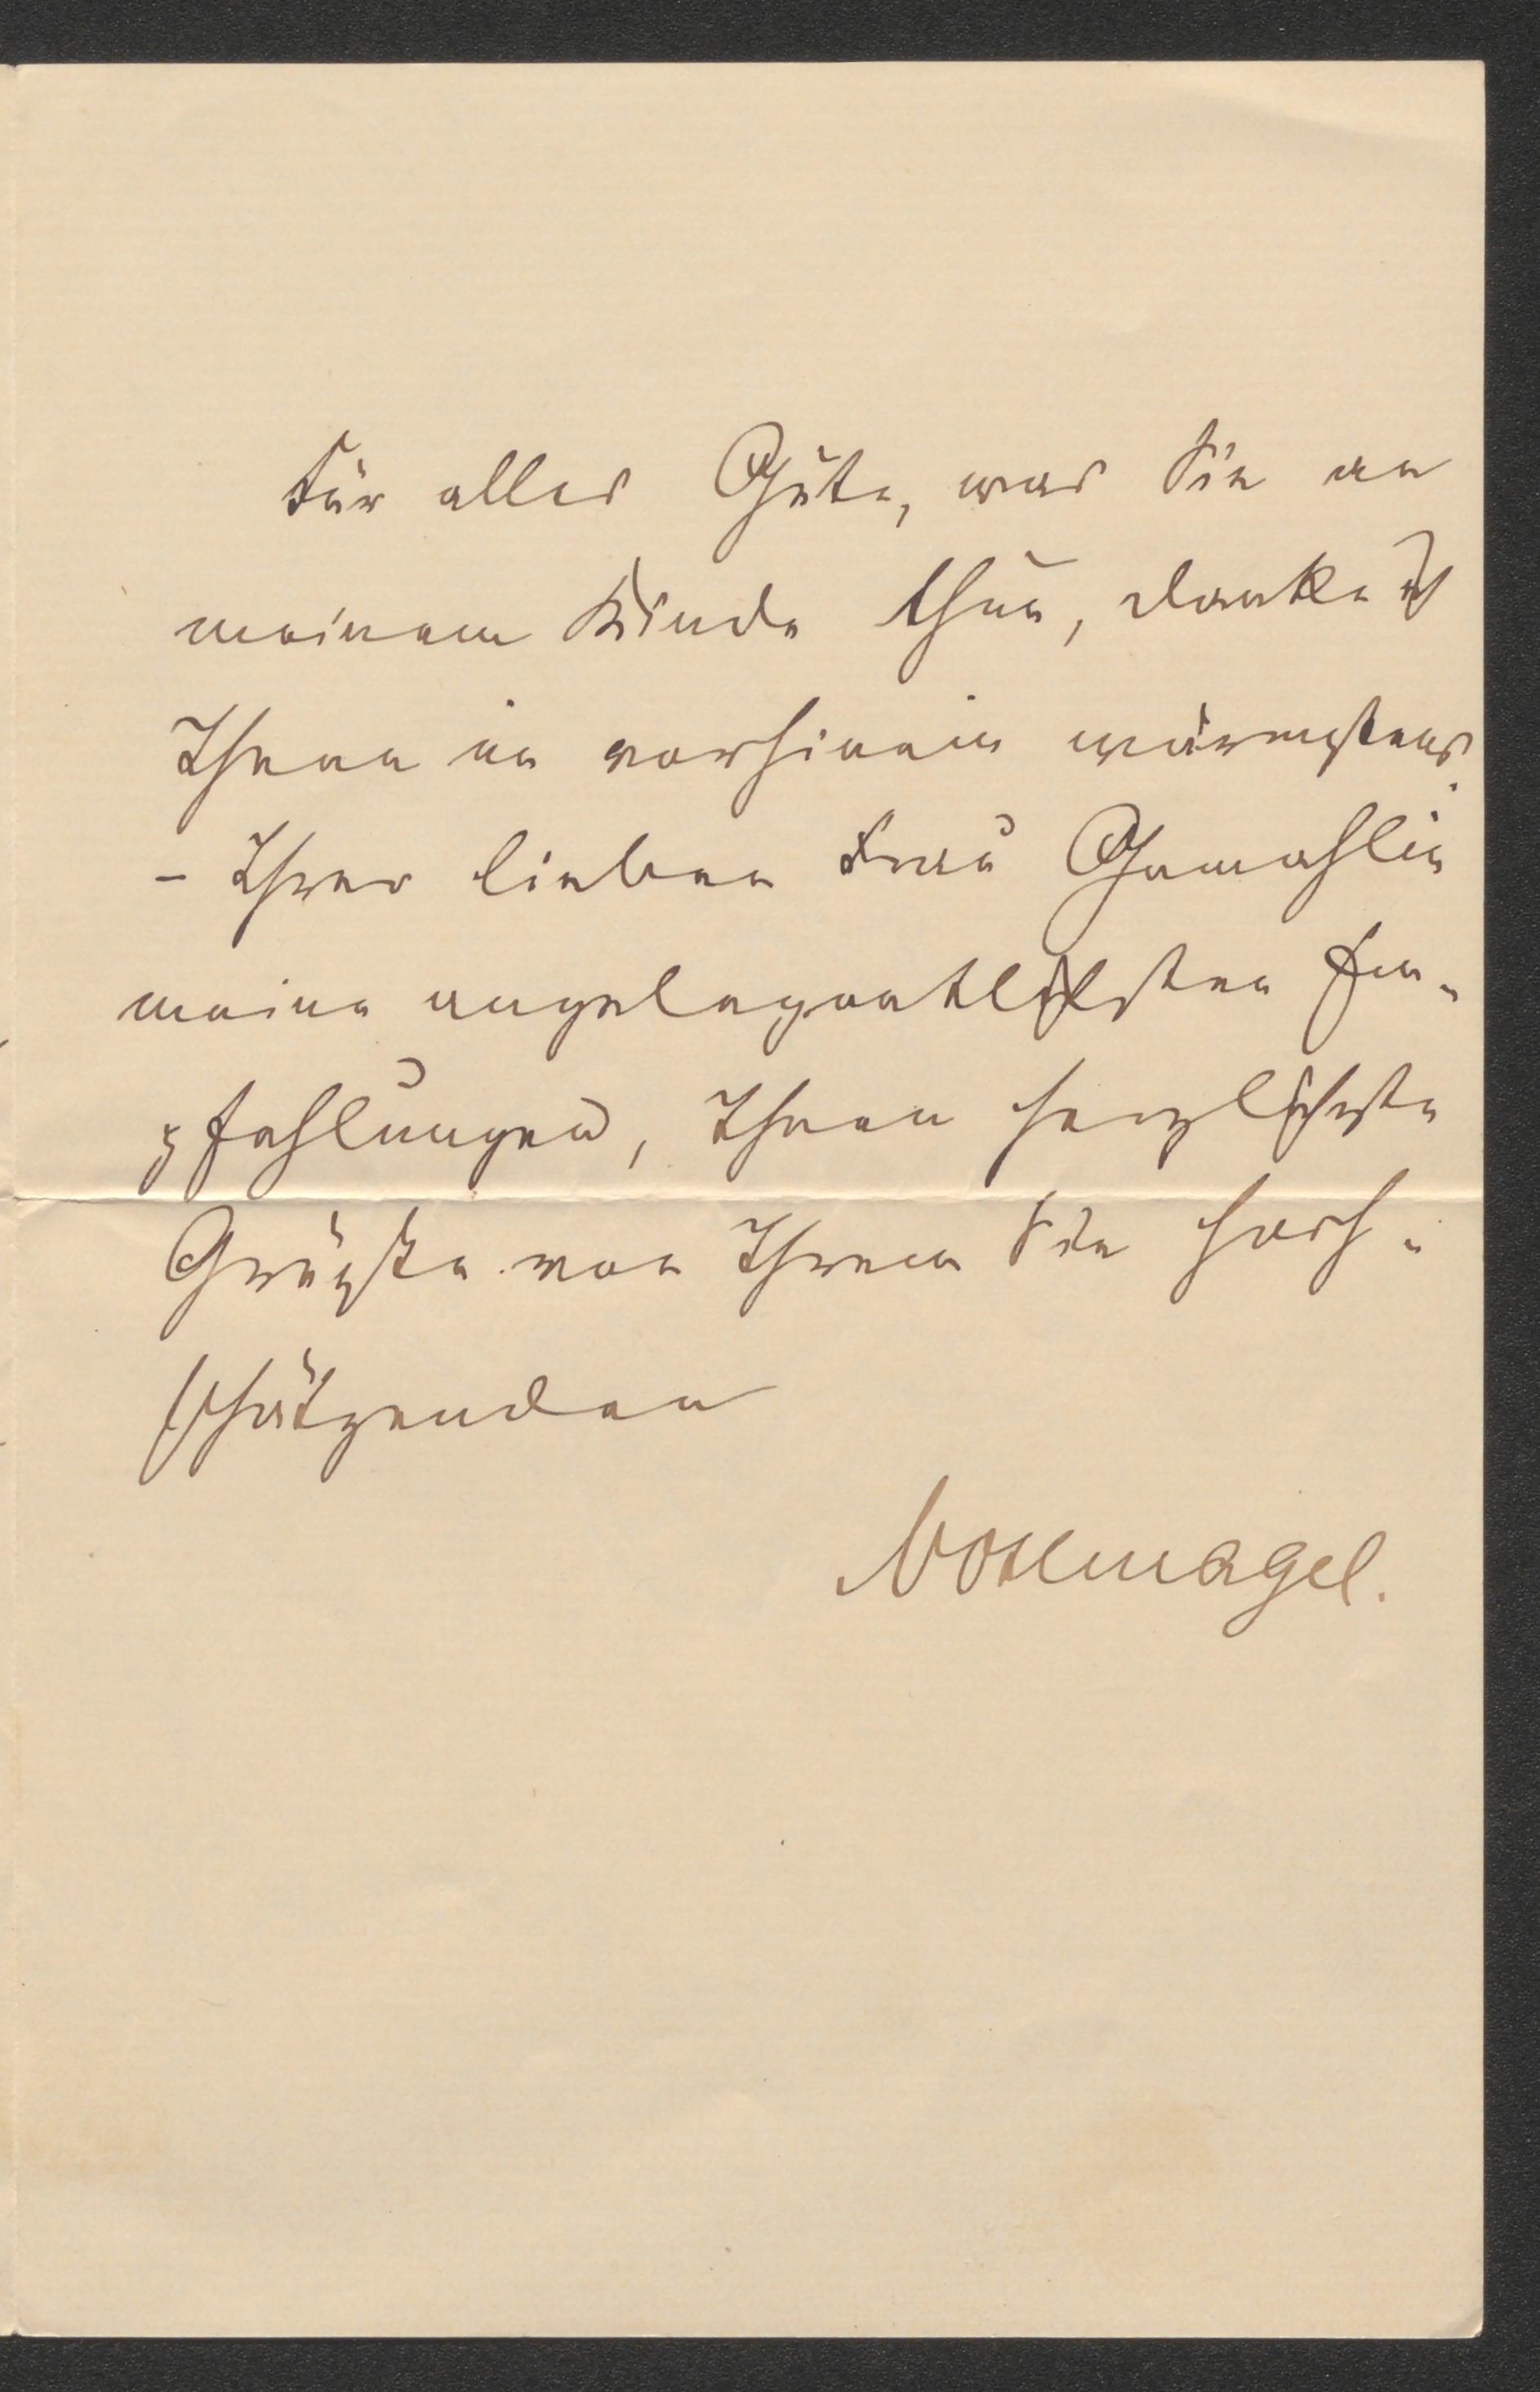 Für alles Gute, was Sie an
meinem Kinde thun, danke ich
Ihnen im vorhinein wärmstens.
- Ihrer lieben Frau Gemahlin
meine angelegentlichsten Em-
pfehlungen, Ihnen herzlichste
Grüße von Ihrem Sie hoch-
schätzenden
Nothnagel.